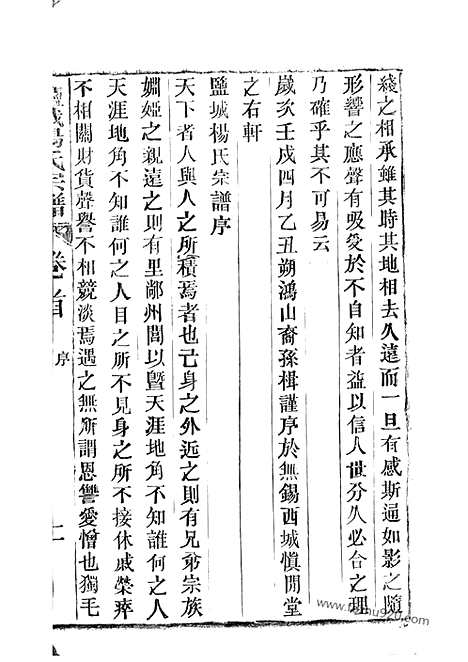 綫之相承雖其時其地相去久遠而一旦有感斯通如影之隨
形響之應聲有吸受於不自知者益以信人世分久必合之理
乃確乎其不可易云
歲次壬戌四月乙丑朔鴻山裔孫楫謹序於無錫西城慎閒堂
之右軒
鹽城楊氏宗譜序
天下者人與人之所積焉者也己身之外近之則有兄弟宗族
婣婭之親遠之則有里鄰州閭以曁天涯地角不知誰何之人
天涯地角不知誰何之人目之所不見身之所不接休戚榮瘁
不相關財貨聲譽不相競淡焉遇之無所謂恩讐愛憎也獨毛
鹽城楊氏宗譜 卷首 序